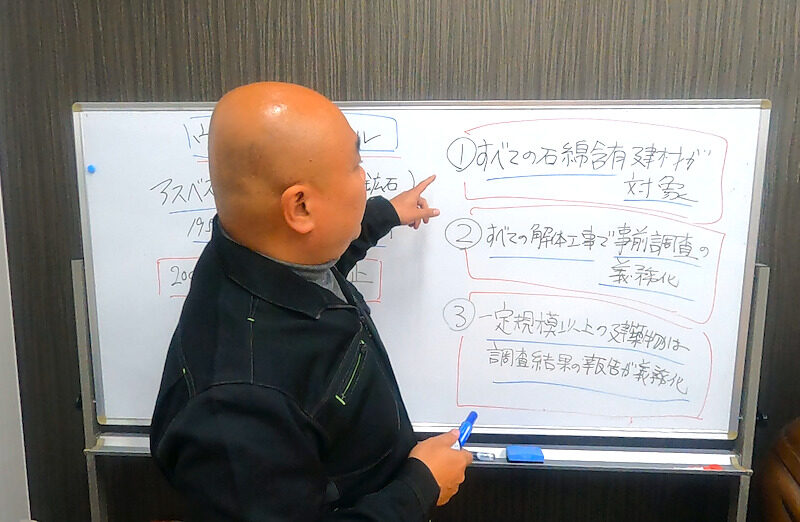 アスベス 鉱石)
195
200 止
①すべての石綿含有建材が
対象
②すべての解体工事で事前調査の
義務化
③一定規模以上の建築物は
調査結果の報告が義務化